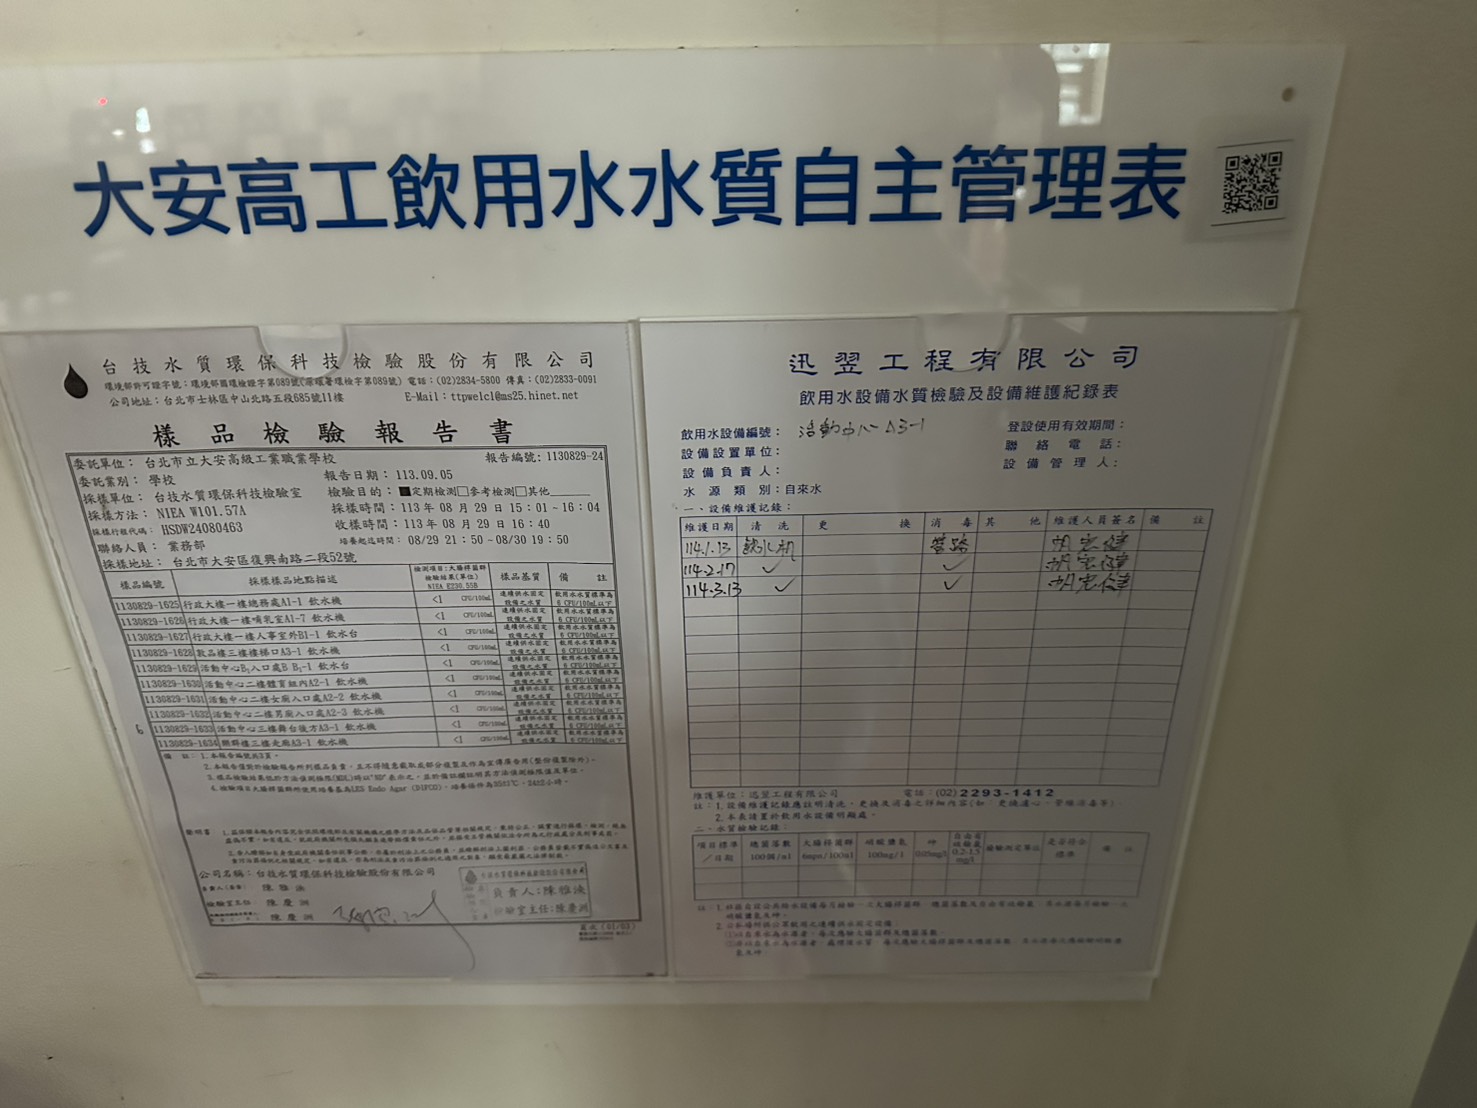 大安高工飲用水水質自主管理表
台技水質環保科技檢驗股份有限公司
環境部許可證字號：環境部國環檢證字第089號(原環署環檢字第089號) 電話：(02)2834-5800 傳真：(02)2833-0091
公司地址：台北市士林區中山北路五段685號11樓 E-Mail：ttpwelcl@ms25.hinet.net
樣品檢驗報告書
委託單位： 台北市立大安高級工業職業學校 報告編號：1130829-24
委託業別： 學校 報告日期：113.09.05
採樣單位： 台技水質環保科技檢驗室 檢驗目的：■定期檢測□參考檢測□其他
採樣方法： NIEA W101.57A 採樣時間：113年08月29日15：01-16：04
採樣行程代碼： HSDW24080463 收樣時間：113年08月29日16：40
聯絡人員： 業務部 培養起迄時間： 08/29 21：50-08/30 19：50
採樣地址： 台北市大安區復興南路二段52號
樣品編號 採樣樣品地點描述 檢測項目：大腸桿菌群 檢驗結果(單位) NIEA E230.55B 樣品基質 備註
1130829-1625 行政大樓一樓總務處A1-1 飲水機 <1 CFU/100mL 連續供水固定設備之水質 飲用水水質標準為6 CFU/100mL以下
1130829-1626 行政大樓一樓哺乳室A1-7 飲水機 <1 CFU/100mL 連續供水固定設備之水質 飲用水水質標準為6 CFU/100mL以下
1130829-1627 行政大樓一樓人事室外B1-1 飲水台 <1 CFU/100mL 連續供水固定設備之水質 飲用水水質標準為6 CFU/100mL以下
1130829-1628 敦品樓三樓樓梯口A3-1 飲水機 <1 CFU/100mL 連續供水固定設備之水質 飲用水水質標準為6 CFU/100mL以下
1130829-1629 活動中心B₁入口處B B₁-1 飲水台 <1 CFU/100mL 連續供水固定設備之水質 飲用水水質標準為6 CFU/100mL以下
1130829-1630 活動中心二樓體育組內A2-1 飲水機 <1 CFU/100mL 連續供水固定設備之水質 飲用水水質標準為6 CFU/100mL以下
1130829-1631 活動中心二樓女廁入口處A2-2 飲水機 <1 CFU/100mL 連續供水固定設備之水質 飲用水水質標準為6 CFU/100mL以下
1130829-1632 活動中心二樓男廁入口處A2-3 飲水機 <1 CFU/100mL 連續供水固定設備之水質 飲用水水質標準為6 CFU/100mL以下
6 1130829-1633 活動中心三樓舞台後方A3-1 飲水機 <1 CFU/100mL 連續供水固定設備之水質 飲用水水質標準為6 CFU/100mL以下
1130829-1634 樂群樓三樓走廊A3-1 飲水機 <1 CFU/100mL 連續供水固定設備之水質 飲用水水質標準為6 CFU/100mL以下
備 註：1.本報告編號共3頁。
2.本報告僅對於檢驗報告所列樣品負責，且不得隨意截取成部分複製及作為宣傳廣告用(整份複製除外)。
3.樣品檢驗結果低於方法偵測極限(MDL)時以"ND"表示之，並於備註欄註明其方法偵測極限值及單位。
公司名稱：台技水質環保科技檢驗股份有限公司
陳雅泱
檢驗室主任 陳慶洲
陳慶洲
負責人：陳雅泱
檢驗室主任：陳慶洲
頁次 (01/03)
迅翌工程有限公司
飲用水設備水質檢驗及設備維護紀錄表
飲用水設備編號： 活動中心A3-1 登設使用有效期間：
設備設置單位： 聯絡電話：
設備負責人： 設備管理人：
水源類別：自來水
一、設備維護記錄：
維護日期 清洗 更換 消毒 其他 維護人員簽名 備註
114.1.13 飲水机 管路
114.2.17 ✓ ✓
114.3.13 ✓ ✓
維護單位：迅翌工程有限公司 電話：(02)2293-1412
註：1.設備維護記錄應註明清洗、更換及消毒之詳細內容(如：更換濾心、管線消毒等)。
2.本表請置於飲用水設備明顯處。
二、水質檢驗記錄：
項目標準／日期 總菌落數 大腸桿菌群 硝酸鹽氮 砷 自由有效餘氯 檢驗測定單位 是否符合標準 備註